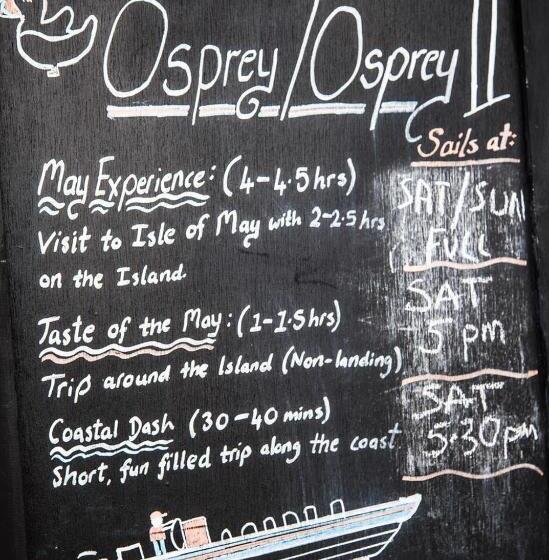 Osprey/Osprey II
Sails at:
May Experience: (4-4.5hrs)
Visit to Isle of May with 2-2.5hrs
on the Island.
SAT/SUN
FULL
Taste of the May: (1-1.5hrs)
Trip around the Island (Non-landing)
SAT
5 pm
Coastal Dash (30-40 mins)
Short, fun filled trip along the coast
SAT
5.30pm